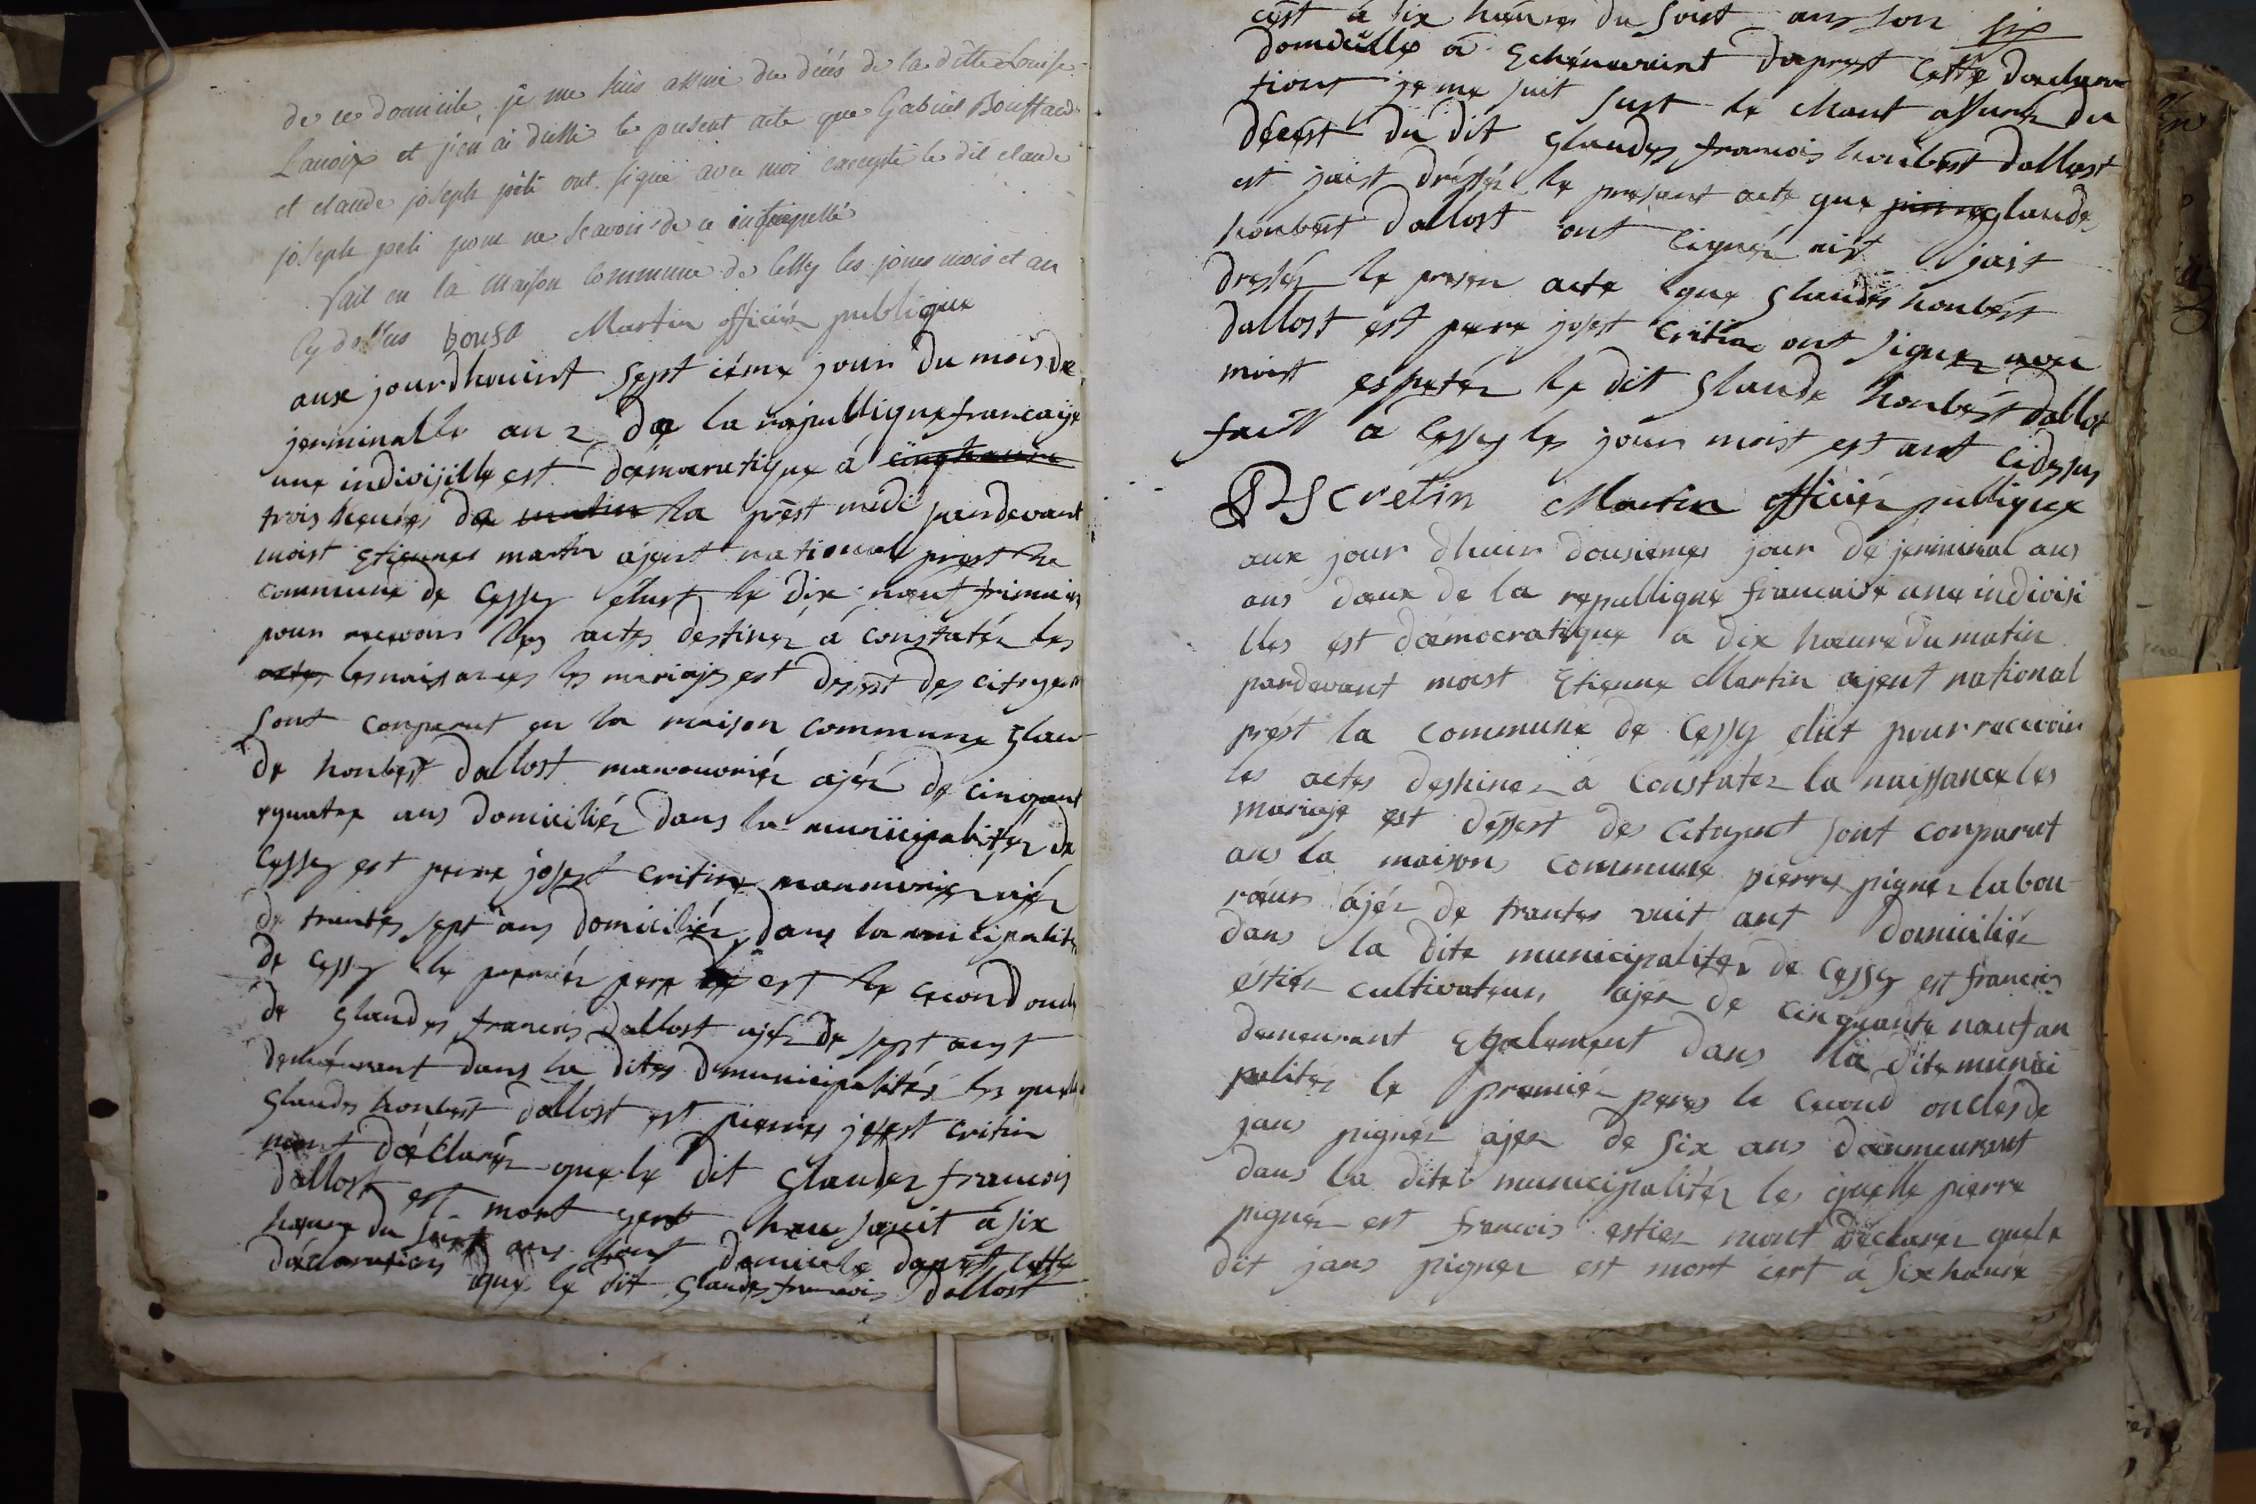 de ce domicile, je me suis assuré du décés de la ditte Louise
Lanoix et j'en ai dressé le present acte que Gabriel
et claude joseph peti ont signé avec moi excepté le dit claude
joseph peti pour ne scavoir de ce
fait en la maison commune de Cessey les jours mois et an
Cy dessus bousa Martin officiér publique
aux jourdhouint sept iéme jour du mois de
jerminalle an 2 de la republique francaise
une indivijille est democratique á cinq heure
trois heures de matin la prést midi pardevant
moist Etiennes martin ajent national prest la
commune de Cessey élust le dix neuf frimaire
pour recevoir les actes destinéz á constatér les
actes les naissances les mariajes est dessest des citoyent
sont conparut en la maison commune glau
de honbést dallost manouvriér ajéz de cinquant
equatre ans domiciliéz dans la municipalitéz de
Cessey est pierre josest critin manouvriér ajéz
de trantes sept ans domiciliéz dans la municipalité
de Cessey le premiér pere est le cecond oncle
de glaudes francois dallost ajéz de sept anst
demeurant dans la dites municipalités les quelle
glaudes honbést dallost est pierres josest critin
mont déclaréz que le dit glaudes francois
dallost est mort á six
heure du soirt ans sont domicile daprést cette
declaration que le dit glaudes francois dallost
cést á six heures du soirt ans son six
domicille á daprest cette daclara
tiont je me suit sust le chant assuréz du
décést du dit glaudes francois honbést dallost
est jaist dréssér le present acte que glaude
honbést dallost ont cignéz jaist
dressér le presen acte que glaudes honbést
dallost est pierre josest critin ont signer avec
moist espetéz le dit glaude honbést dallot
fait á Cessey les jours moist est ant cidessus
PJS cretin Martin officiér publique
aux jour dhuir dousiemes jour de jerminal ans
ans deux de la republique francaise une indivisi
lles est democratique á dix heure du matin
pardevant moist Etienne Martin ajent national
prést la commune de Cessy elut pour recevoir
les actes destinez á constatez la naissance les
mariaje est déssest des citoyent sont conparut
ans la maison commune pierre pignez labou
reur ájéz de trantes vuit ant domiciliéz
dans la dite municipalitez de Cessey est francois
éstiér cultivateur ajez de cinquante neuf an
demeurant Egalement dans la dite munici
palitéz le premiér peres le cecond oncles de
jans pignez ajez de six ans demeurant
dans la dites municipalitéz les quelle pierre
pignéz est francois estiez mont déclarez quele
dit jans pignez est mort cert á six heure